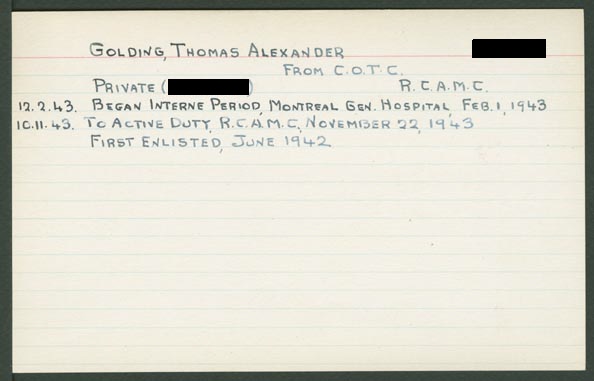 GOLDING, THOMAS ALEXANDER
FROM C.O.T.C.
PRIVATE ( ) R.C.A.M.C.
12.2.43. BEGAN INTERNE PERIOD, MONTREAL GEN. HOSPITAL, FEB. 1, 1943
10.11.43. TO ACTIVE DUTY, R.C.A.M.C., NOVEMBER 22, 1943
FIRST ENLISTED, JUNE 1942